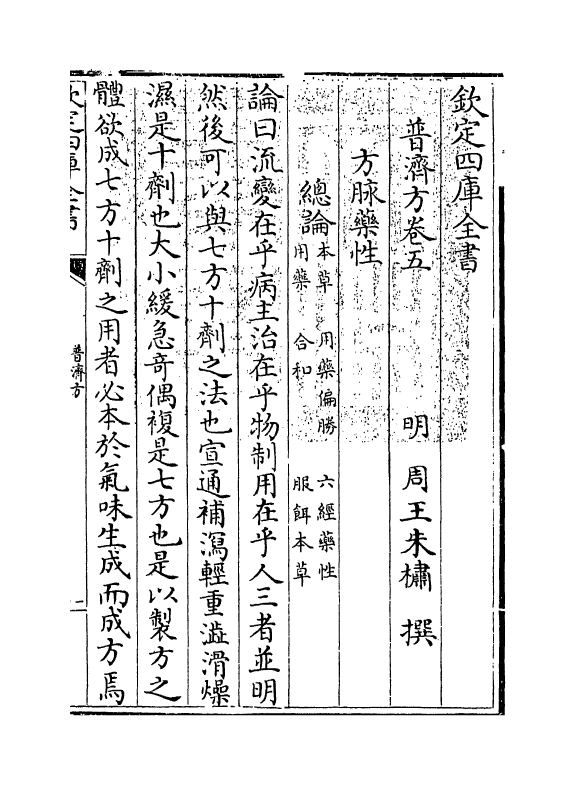 欽定四庫全書
普濟方卷五
明 周王朱橚 撰
方脉藥性
總論本草 用藥偏勝 六經藥性
用藥 合和 服餌本草
論曰流變在乎病主治在乎物制用在乎人三者並明
然後可以與七方十劑之法也宣通補瀉輕重澁滑燥
濕是十劑也大小緩急奇偶複是七方也是以製方之
體欲成七方十劑之用者必本於氣味生成而成方焉
欽定四庫全書
普濟方